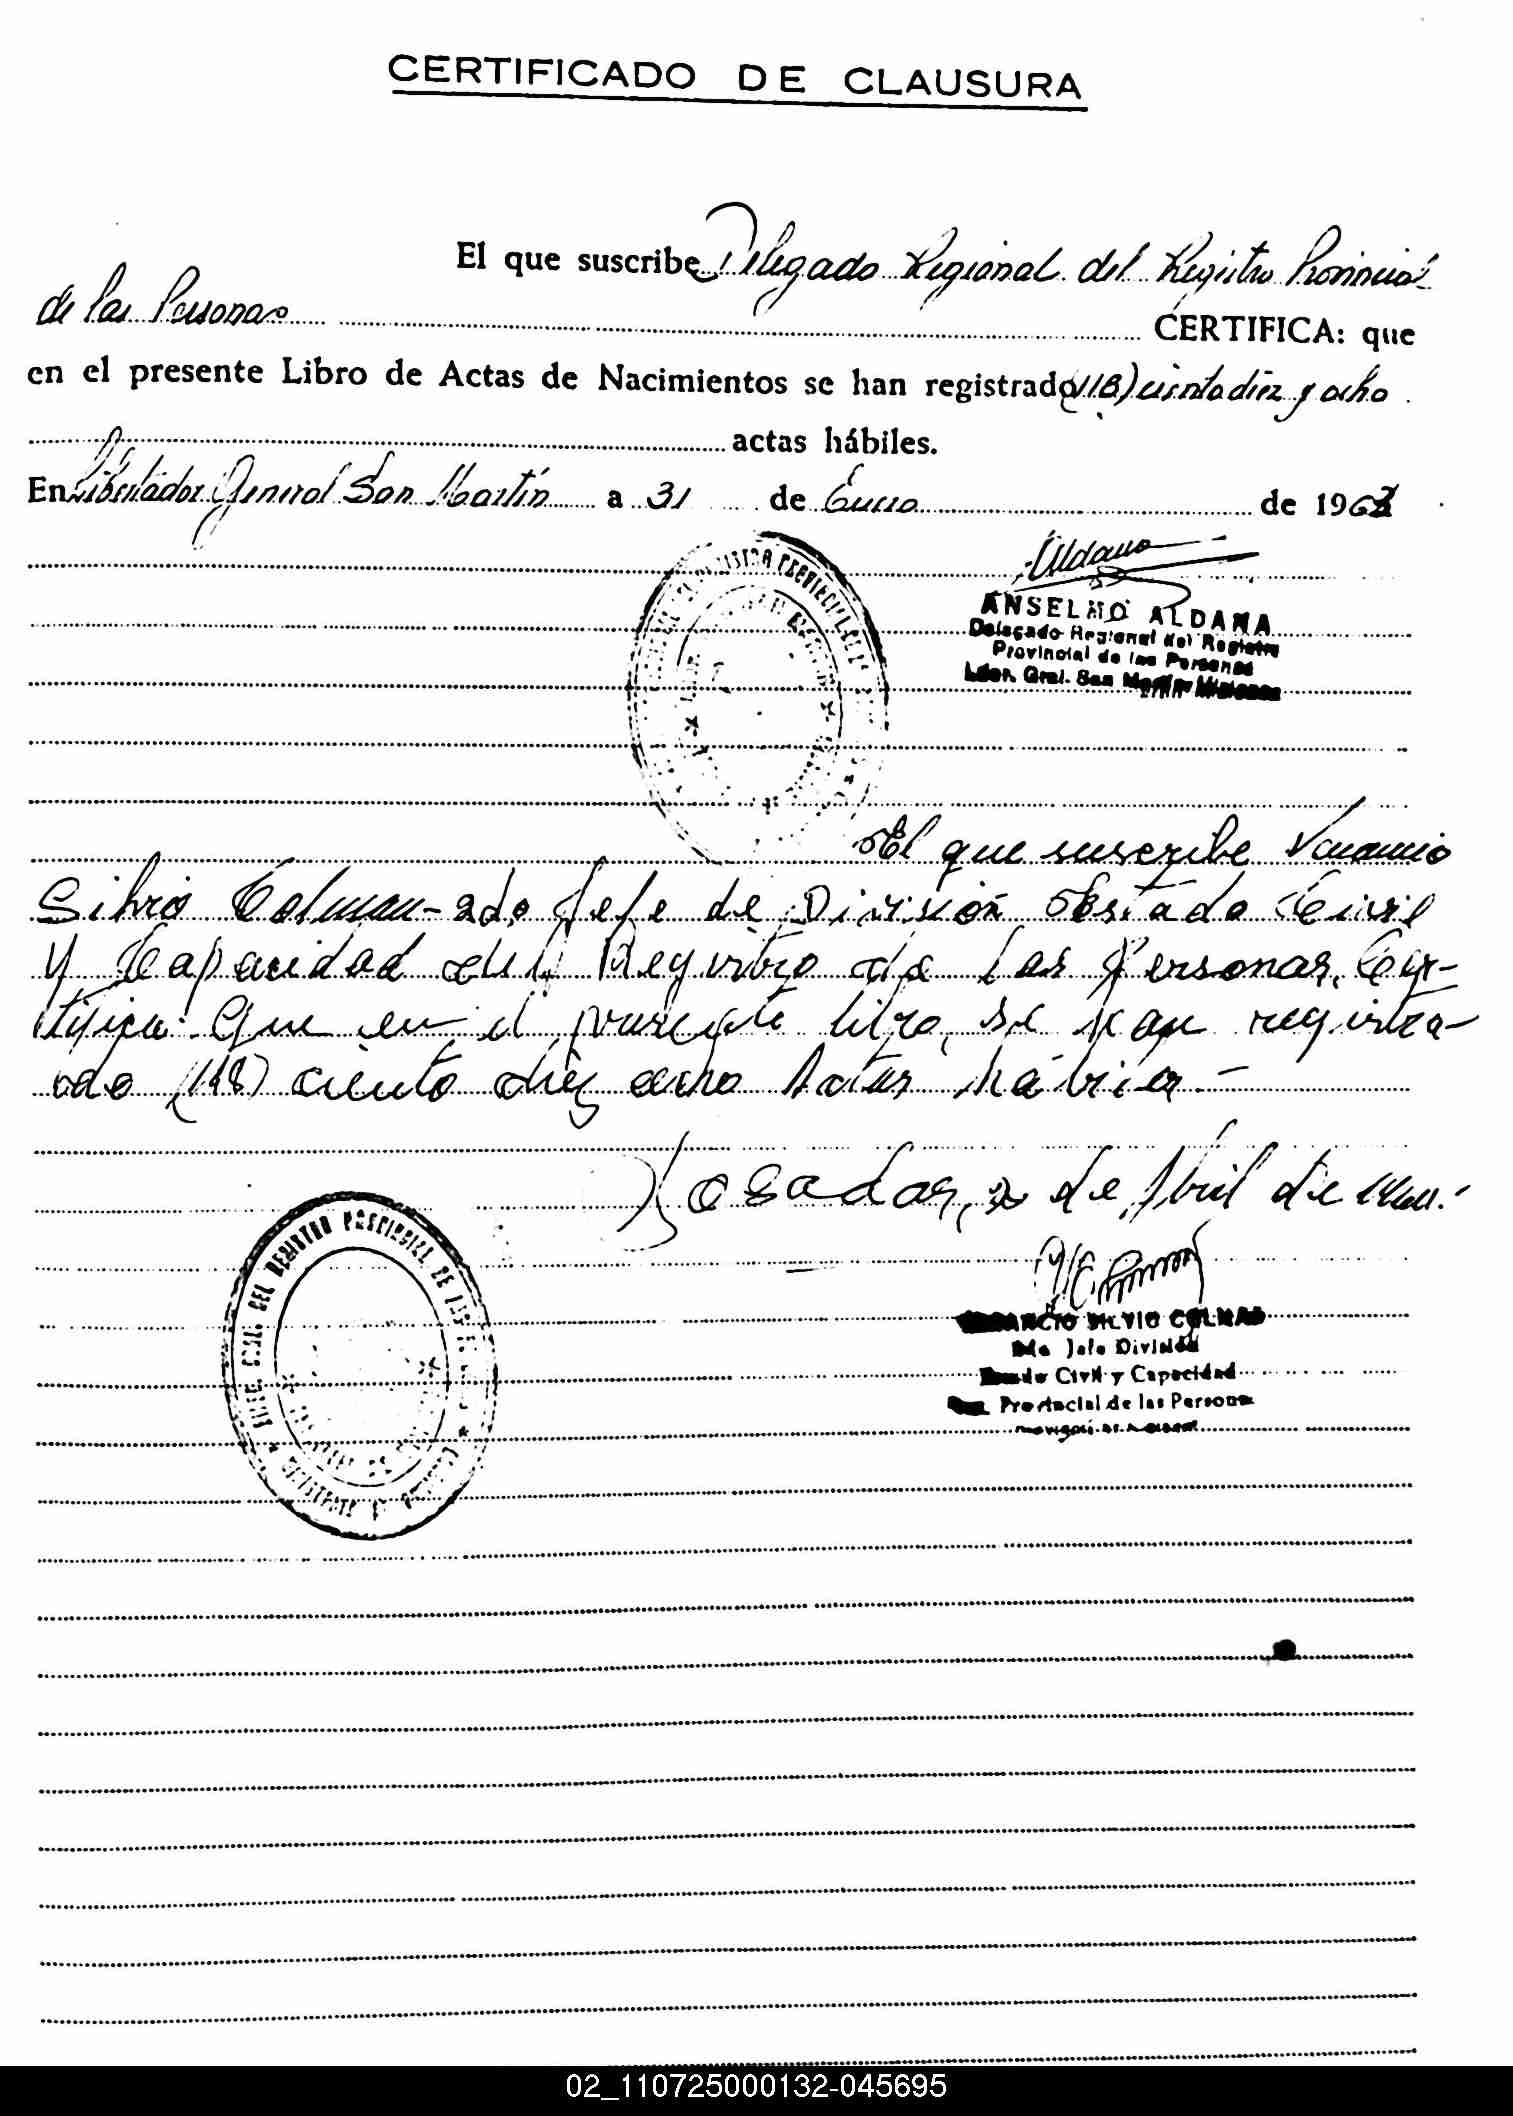 CERTIFICADO DE CLAUSURA
El que suscribe Delegado Regional del Registro Provincial
de las Personas CERTIFICA: que
en el presente Libro de Actas de Nacimientos se han registrado (118) ciento diez y ocho
actas hábiles.
En Libertador General San Martín a 31 de Enero de 196
Aldana
ANSELMO ALDANA
Delegado Regional del Registro
Provincial de las Personas
Lder. Gral. San Martín Misiones
El que suscribe Venancio
Silvio Colman - 2do. Jefe de División Estado Civil
y Capacidad del Registro de las Personas, Cer-
tifica: Que en el presente libro, se han registra-
do (118) ciento diez ocho Actas hábiles. -
Posadas, de Abril de
DEL REGISTRO PROVINCIAL DE LAS
VENANCIO SILVIO COLMAN
2do Jefe División
Estado Civil y Capacidad
Provincial de las Persona
02_110725000132-045695